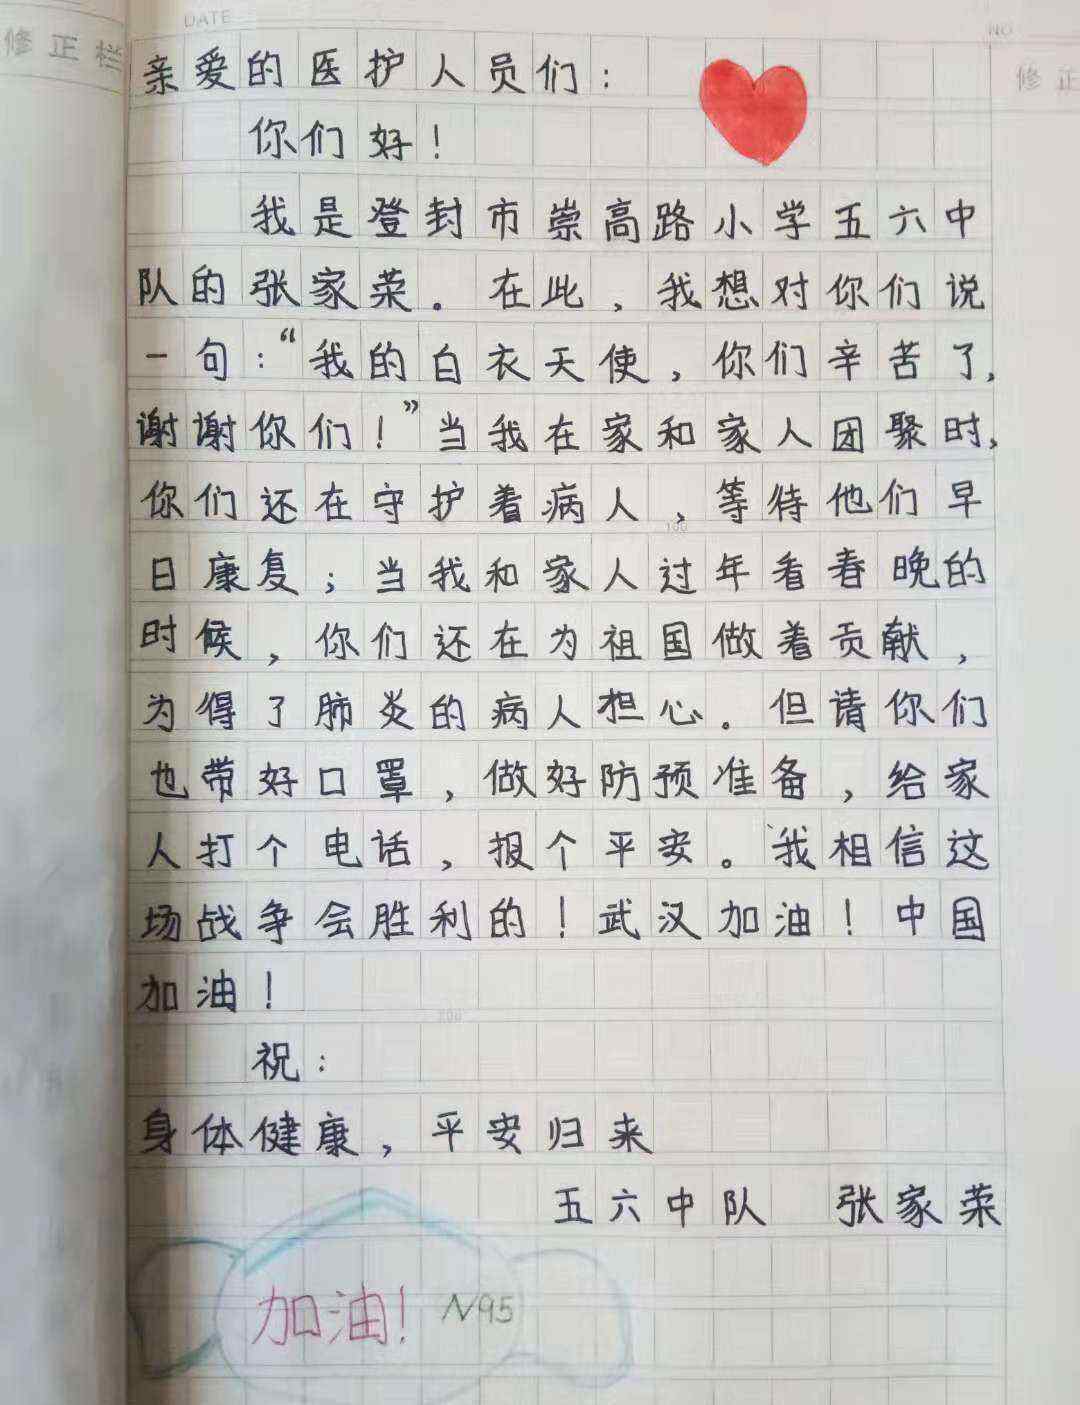 修正栏
DATE
NO
修正
亲爱的医护人员们：
你们好！
我是登封市崇高路小学五六中
队的张家荣。在此，我想对你们说
一句：“我的白衣天使，你们辛苦了，
谢谢你们！”当我在家和家人团聚时，
你们还在守护着病人，等待他们早
日康复；当我和家人过年看春晚的
时候，你们还在为祖国做着贡献，
为得了肺炎的病人担心。但请你们
也带好口罩，做好防预准备，给家
人打个电话，报个平安。我相信这
场战争会胜利的！武汉加油！中国
加油！
祝：
身体健康，平安归来
五六中队 张家荣
加油！N95